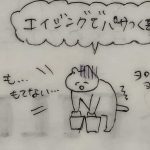 エイジングでパサつくキ
も…
もてない…
ヨロ